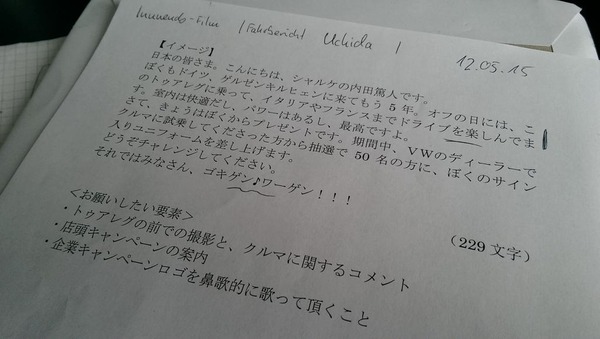 Innuendo-Film / Fahrbericht Uchida / 12.05.15
【イメージ】
日本の皆さま、こんにちは、シャルケの内田篤人です。
ぼくもドイツ、ゲルゼンキルヒェンに来てもう5年。オフの日には、こ
のトゥアレグに乗って、イタリアやフランスまでドライブを楽しんでま
す。室内は快適だし、パワーはあるし、最高ですよ。
さて、きょうはぼくからプレゼントです。期間中、VWのディーラーで
クルマに試乗してくださった方から抽選で50名の方に、ぼくのサイン
入りユニフォームを差し上げます。
どうぞチャレンジしてください。
それではみなさん、ゴキゲン♪ワーゲン！！！
(229文字)
＜お願いしたい要素＞
・トゥアレグの前での撮影と、クルマに関するコメント
・店頭キャンペーンの案内
・企業キャンペーンロゴを鼻歌的に歌って頂くこと